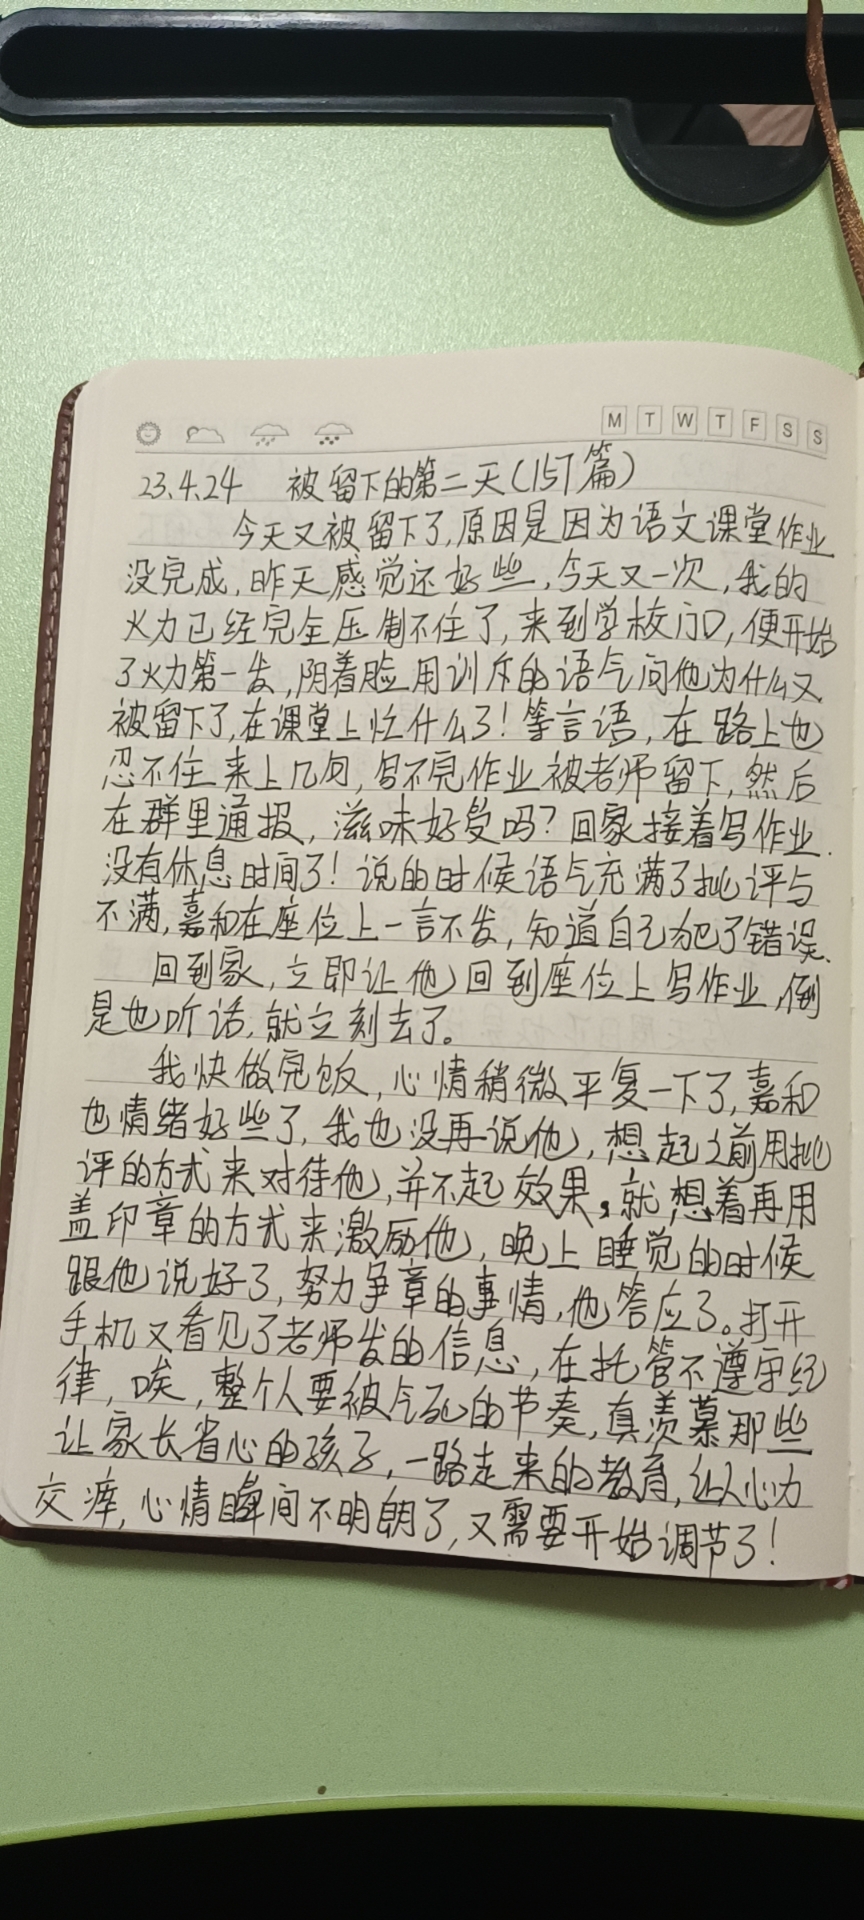 M T W T F S S
23.4.24 被留下的第二天(157篇)
今天又被留下了,原因是因为语文课堂作业
没完成,昨天感觉还好些,今天又一次,我的
火力已经完全压制不住了,来到学校门口,便开始
了火力第一发,阴着脸用训斥的语气问他为什么又
被留下了,在课堂上忙什么了!等言语,在路上也
忍不住来上几句,写不完作业被老师留下,然后
在群里通报,滋味好受吗?回家接着写作业.
没有休息时间了!说的时候语气充满了批评与
不满,嘉和在座位上一言不发,知道自己犯了错误.
回到家,立即让他回到座位上写作业,倒
是也听话,就立刻去了。
我快做完饭,心情稍微平复一下了,嘉和
也情绪好些了,我也没再说他,想起之前用批
评的方式来对待他,并不起效果,就想着再用
盖印章的方式来激励他,晚上睡觉的时候
跟他说好了,努力争章的事情,他答应了。打开
手机又看见了老师发的信息,在托管不遵守纪
律,唉,整个人要被气死的节奏,真羡慕那些
让家长省心的孩子,一路走来的教育,让人心力
交瘁,心情瞬间不明朗了,又需要开始调节了!